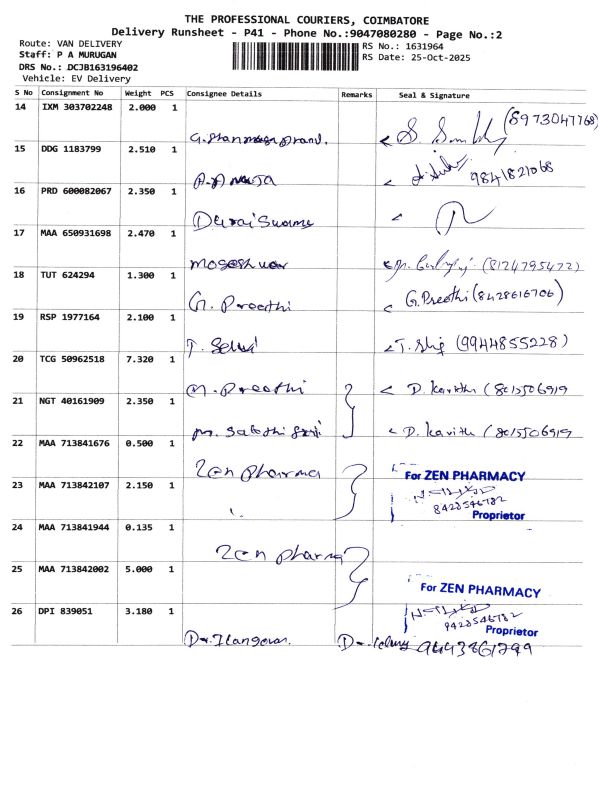 THE PROFESSIONAL COURIERS, COIMBATORE
Delivery Runsheet - P41 - Phone No.:9047080280 - Page No.:2
Route: VAN DELIVERY
Staff: P A MURUGAN
DRS No.: DCJB163196402
Vehicle: EV Delivery
RS No.: 1631964
RS Date: 25-Oct-2025
S No Consignment No Weight PCS Consignee Details Remarks Seal & Signature
14 IXM 303702248 2.000 1 (8973047768)
15 DDG 1183799 2.510 1 9841821068
16 PRD 600082067 2.350 1 Durai Swamy
17 MAA 650931698 2.470 1 (8124795472)
18 TUT 624294 1.300 1 G. Preethi G. Preethi (8428616706)
19 RSP 1977164 2.100 1 T. Selvi T. (9944855228)
20 TCG 50962518 7.320 1 M. Preethi D. Kavitha (8015506919
21 NGT 40161909 2.350 1 D. Kavitha (8015506919
22 MAA 713841676 0.500 1 Zen pharma
For ZEN PHARMACY
23 MAA 713842107 2.150 1 8428546782
Proprietor
24 MAA 713841944 0.135 1 Zen pharma
25 MAA 713842002 5.000 1
For ZEN PHARMACY
26 DPI 839051 3.180 1 8428546782
Proprietor
Dr. Ilangovan. Dr. 9443861799